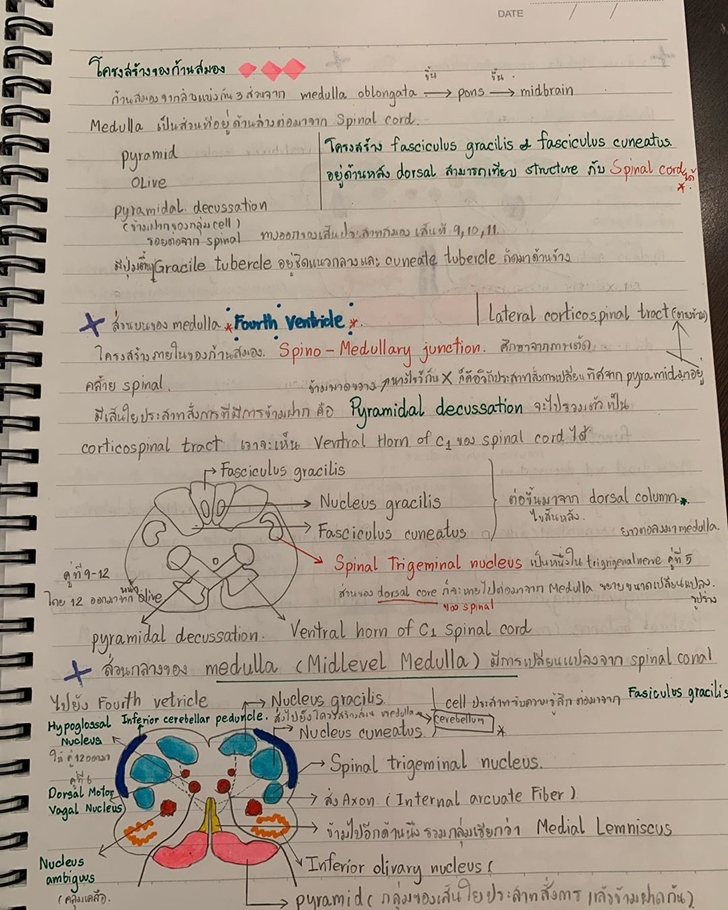 DATE / /
โครงสร้างของก้านสมอง
ก้านสมองจากล่างแบ่งเป็น 3 ส่วนจาก medulla oblongata ขึ้น → pons ขึ้น → midbrain
Medulla เป็นส่วนที่อยู่ด้านล่างต่อมาจาก Spinal cord.
pyramid
Olive
pyramidal decussation
(ข้ามฝากของกลุ่ม cell)
รอยต่อจาก spinal ทางออกของเส้นประสาทสมอง เส้นที่ 9,10,11
โครงสร้าง fasciculus gracilis & fasciculus cuneatus
อยู่ด้านหลัง dorsal สามารถเทียบ structure กับ Spinal cord ได้ *
Gracile tubercle อยู่ชิดแนวกลางและ cuneate tubercle ถัดมาด้านข้าง
+ ส่วนบนของ medulla * Fourth Ventricle *.
Lateral corticospinal tract
โครงสร้างภายในของก้านสมอง Spino - Medullary junction. ศึกษาจากการตัด
คล้าย spinal.
pyramid
มีเส้นใยประสาทสั่งการที่มีการข้ามฝาก คือ Pyramidal decussation จะไปรวมตัวเป็น
corticospinal tract เราจะเห็น Ventral Horn of C1 ของ spinal cord ได้
Fasciculus gracilis
Nucleus gracilis
Fasciculus cuneatus
ต่อขึ้นมาจาก dorsal column.
ไขสันหลัง.
medulla.
Spinal Trigeminal nucleus เป็นหนึ่งใน trigrigenal nerve คู่ที่ 5
คู่ที่ 9-12
โดย 12 ออกมาจากหน้า olive
ส่วนของ dorsal core ก็จะหายไปต่อมาจาก Medulla ขยายขนาดเปลี่ยนแปลง
ของ spinal
รูปร่าง
pyramidal decussation. Ventral horn of C1 Spinal cord
+ ส่วนกลางของ medulla (Midlevel Medulla) มีการเปลี่ยนแปลงจาก spinal canal
ไปยัง Fourth vetricle
Nucleus gracilis
cell ประสาทรับความรู้สึก ต่อมาจาก Fasiculus gracilis
Hypoglossal Nucleus
Inferior cerebellar peduncle.
medulla → cerebellum *
Nucleus cuneatus
Spinal trigeminal nucleus.
คู่ที่ 6
Dorsal Motor Vagal Nucleus
ส่ง Axon (Internal arcuate Fiber)
ข้ามไปอีกด้านนึง รวมกลุ่มเรียกว่า Medial Lemniscus
Nucleus ambigus
Inferior olivary nucleus (
pyramid (กลุ่มของเส้นใยประสาทสั่งการ แล้วข้ามฝากกัน)